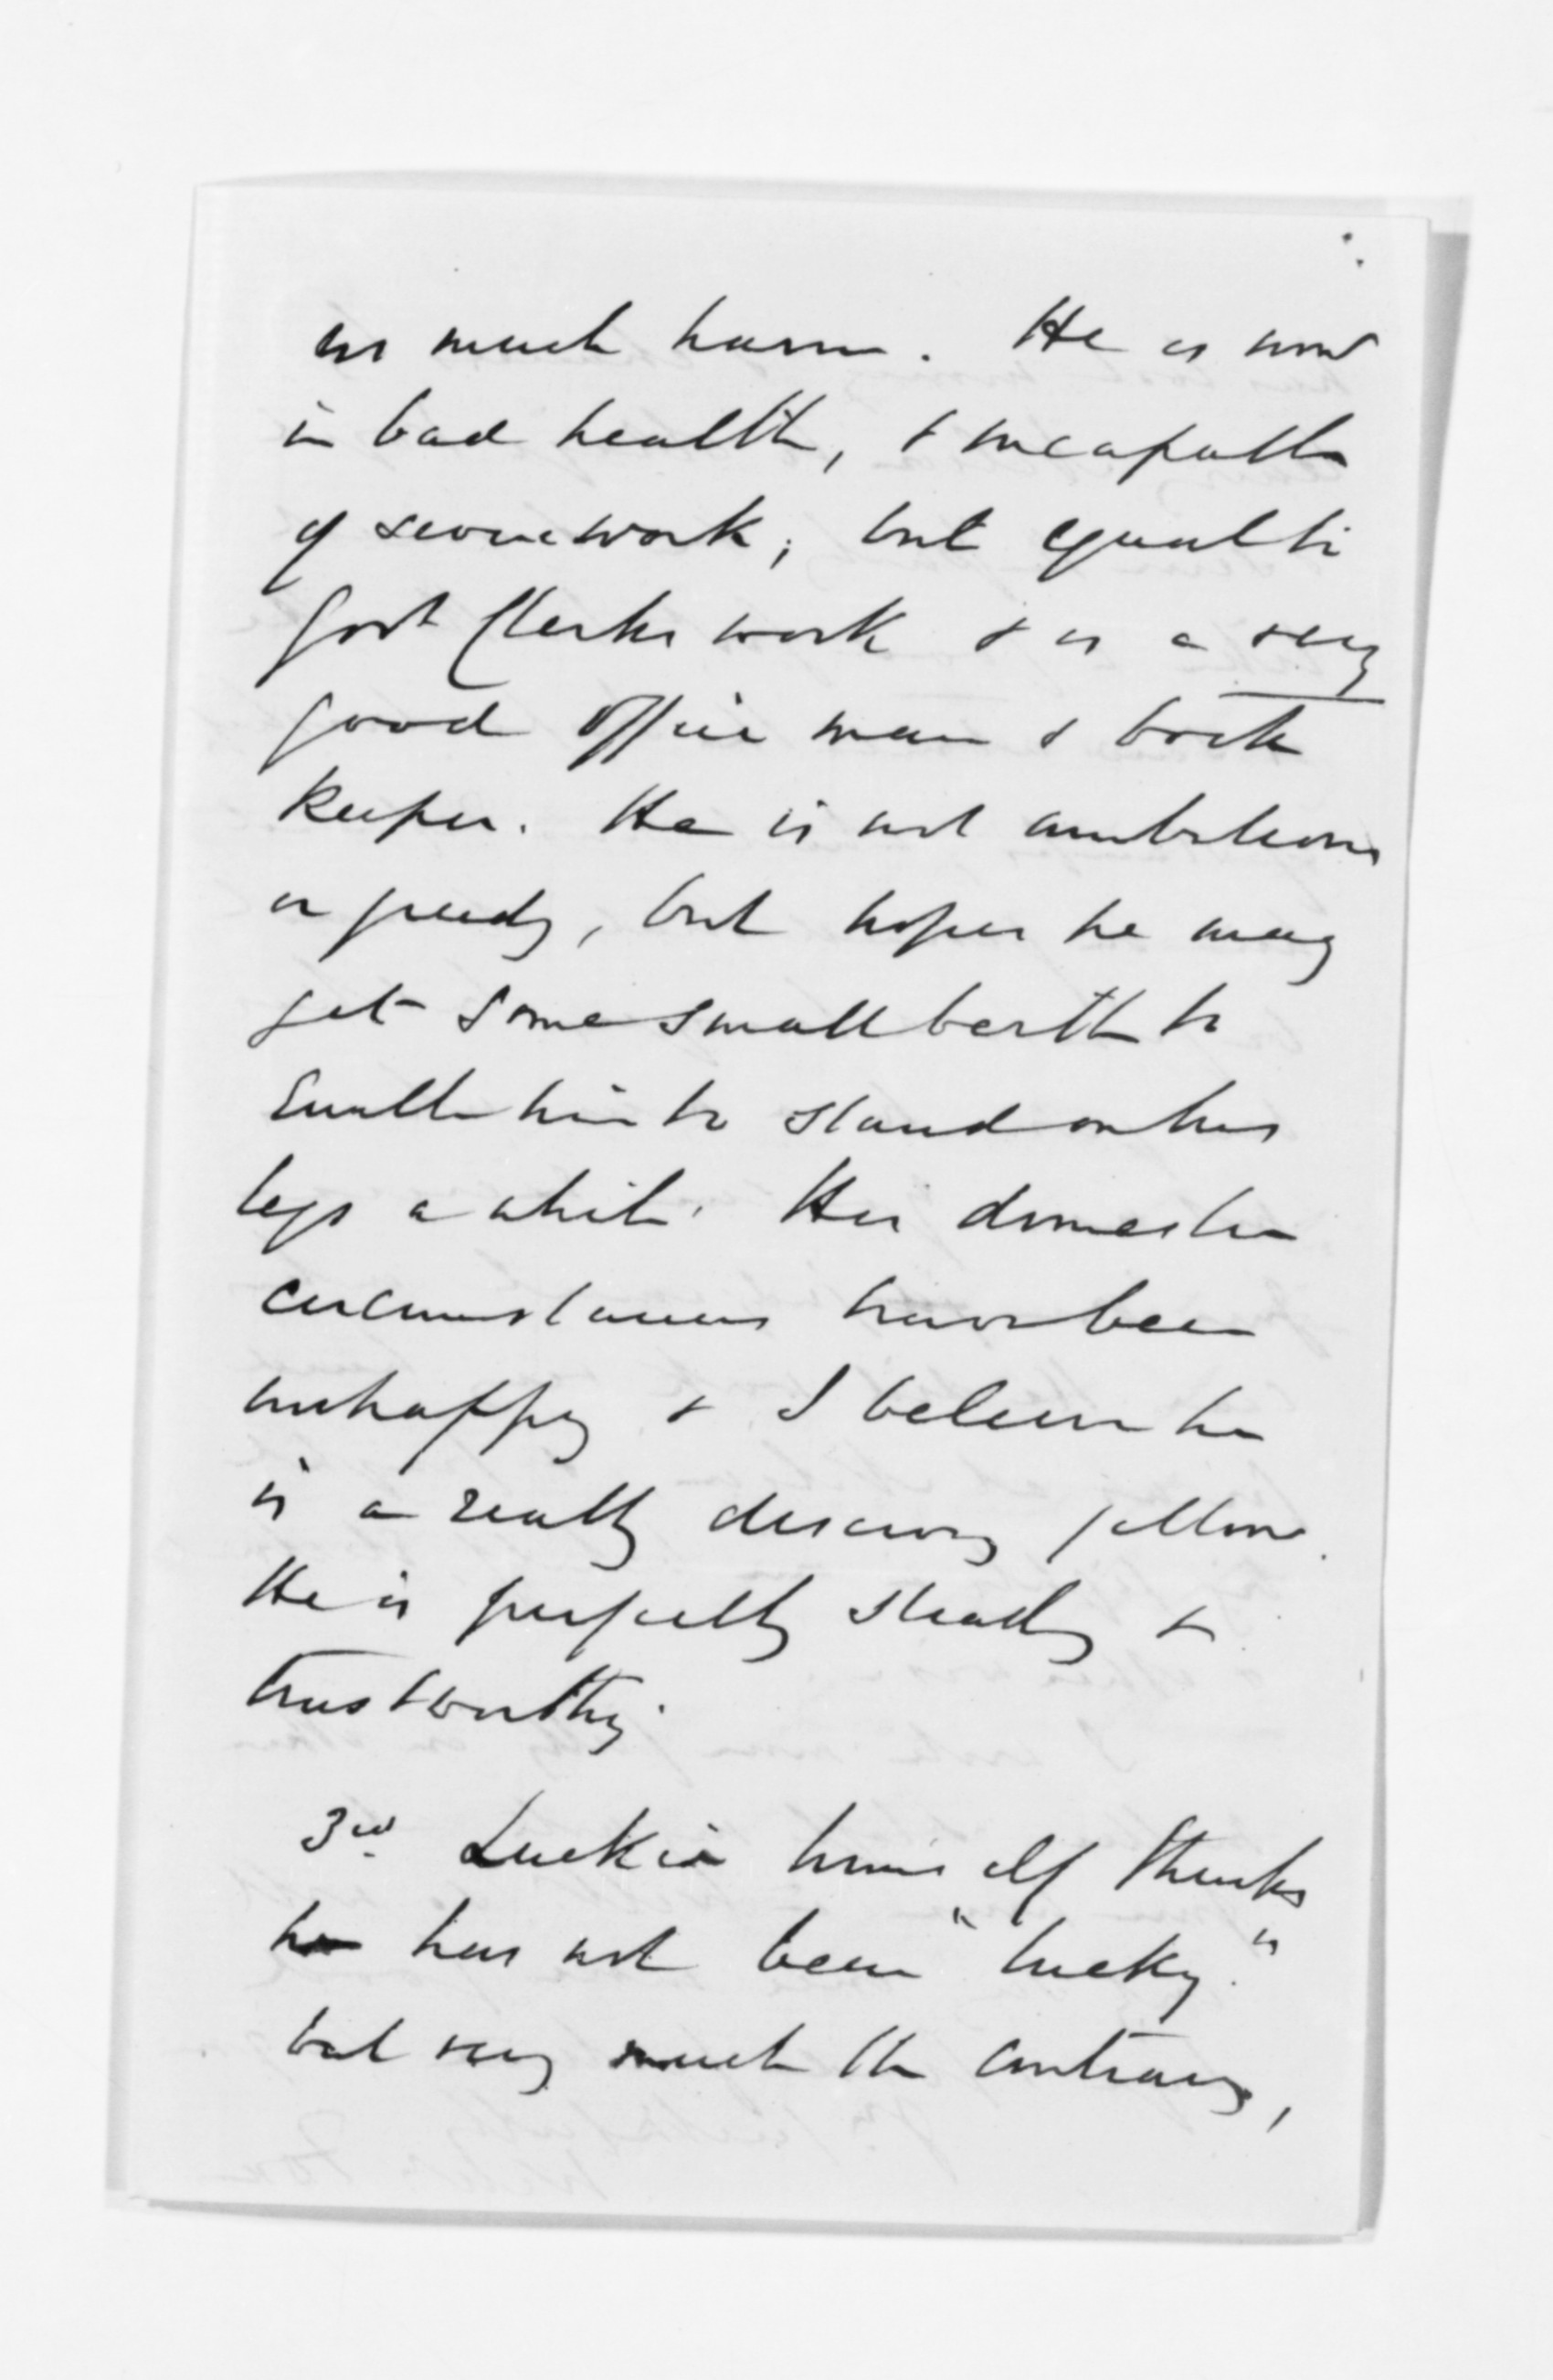 us much harm. He is now
in bad health, & incapable
of severe work; but equal to
good Clerks work & is a very
good office man & book
keeper. He is not ambitious
or greedy, but hopes he may
get some small berth to
Enable him to stand on his
legs a while. His domestic
circumstances have been
unhappy & I believe he
is a really deserving fellow.
He is perfectly steady &
trustworthy.
3rd Luckie himself thinks
he has not been "lucky."
but very much the contrary,